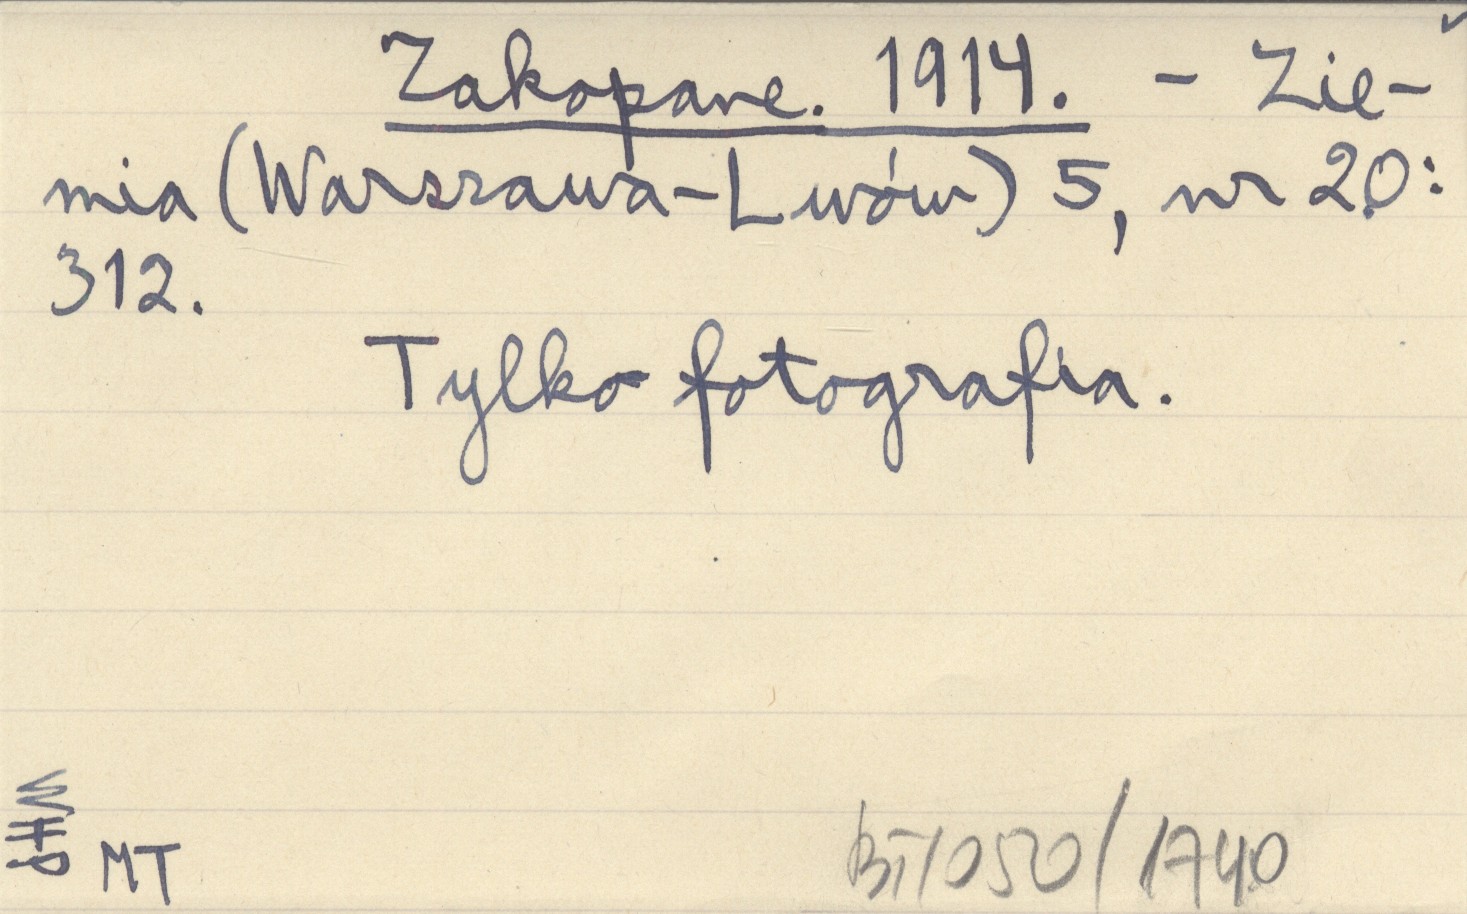 Zakopane. 1914. - Zie-
mia (Warszawa-Lwów) 5, nr 20:
312.
Tylko fotografia.
MT